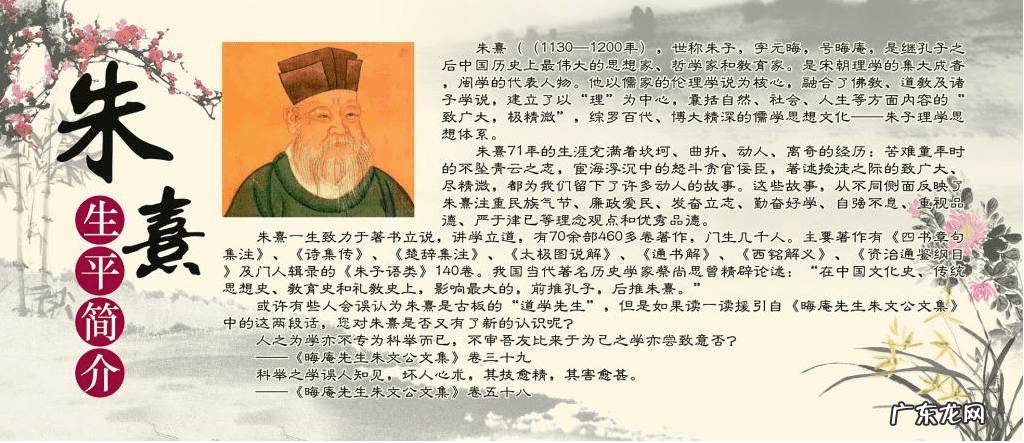 朱熹
生平简介
朱熹（（1130—1200年），世称朱子，字元晦，号晦庵，是继孔子之
后中国历史上最伟大的思想家、哲学家和教育家。是宋朝理学的集大成者
，闽学的代表人物。他以儒家的伦理学说为核心，融合了佛教、道教及诸
子学说，建立了以“理”为中心，囊括自然、社会、人生等方面内容的“
致广大，极精微”，综罗百代、博大精深的儒学思想文化——朱子理学思
想体系。
朱熹71年的生涯充满着坎坷、曲折、动人、离奇的经历：苦难童年时
的不坠青云之志，宦海浮沉中的怒斗贪官佞臣，著述授徒之际的致广大、
尽精微，都为我们留下了许多动人的故事。这些故事，从不同侧面反映了
朱熹注重民族气节、廉政爱民、发奋立志、勤奋好学、自强不息、重视品
德、严于律已等理念观点和优秀品德。
朱熹一生致力于著书立说，讲学立道，有70余部460多卷著作，门生几千人。主要著作有《四书章句
集注》、《诗集传》、《楚辞集注》、《太极图说解》、《通书解》、《西铭解义》、《资治通鉴纲目
》及门人辑录的《朱子语类》140卷。我国当代著名历史学家蔡尚思曾精辟论述：“在中国文化史、传统
思想史、教育史和礼教史上，影响最大的，前推孔子，后推朱熹。”
或许有些人会误认为朱熹是古板的“道学先生”，但是如果读一读援引自《晦庵先生朱文公文集》
中的这两段话，您对朱熹是否又有了新的认识呢？
人之为学亦不专为科举而已，不审吾友比来于为已之学亦尝致意否？
——《晦庵先生朱文公文集》卷三十九
科举之学误人知见，坏人心术，其技愈精，其害愈甚。
——《晦庵先生朱文公文集》卷五十八
广东龙网